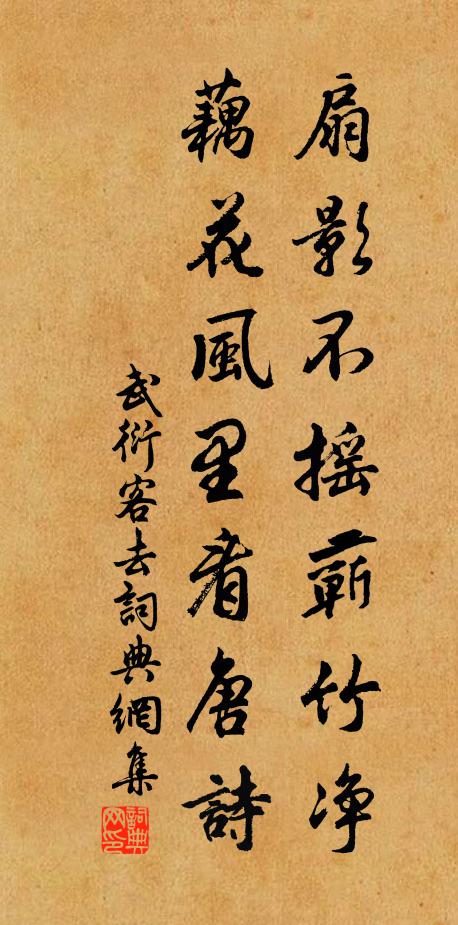 扇影不摇蕲竹净
藕花風里看唐詩
武衍客去詞典網集
詞典网印